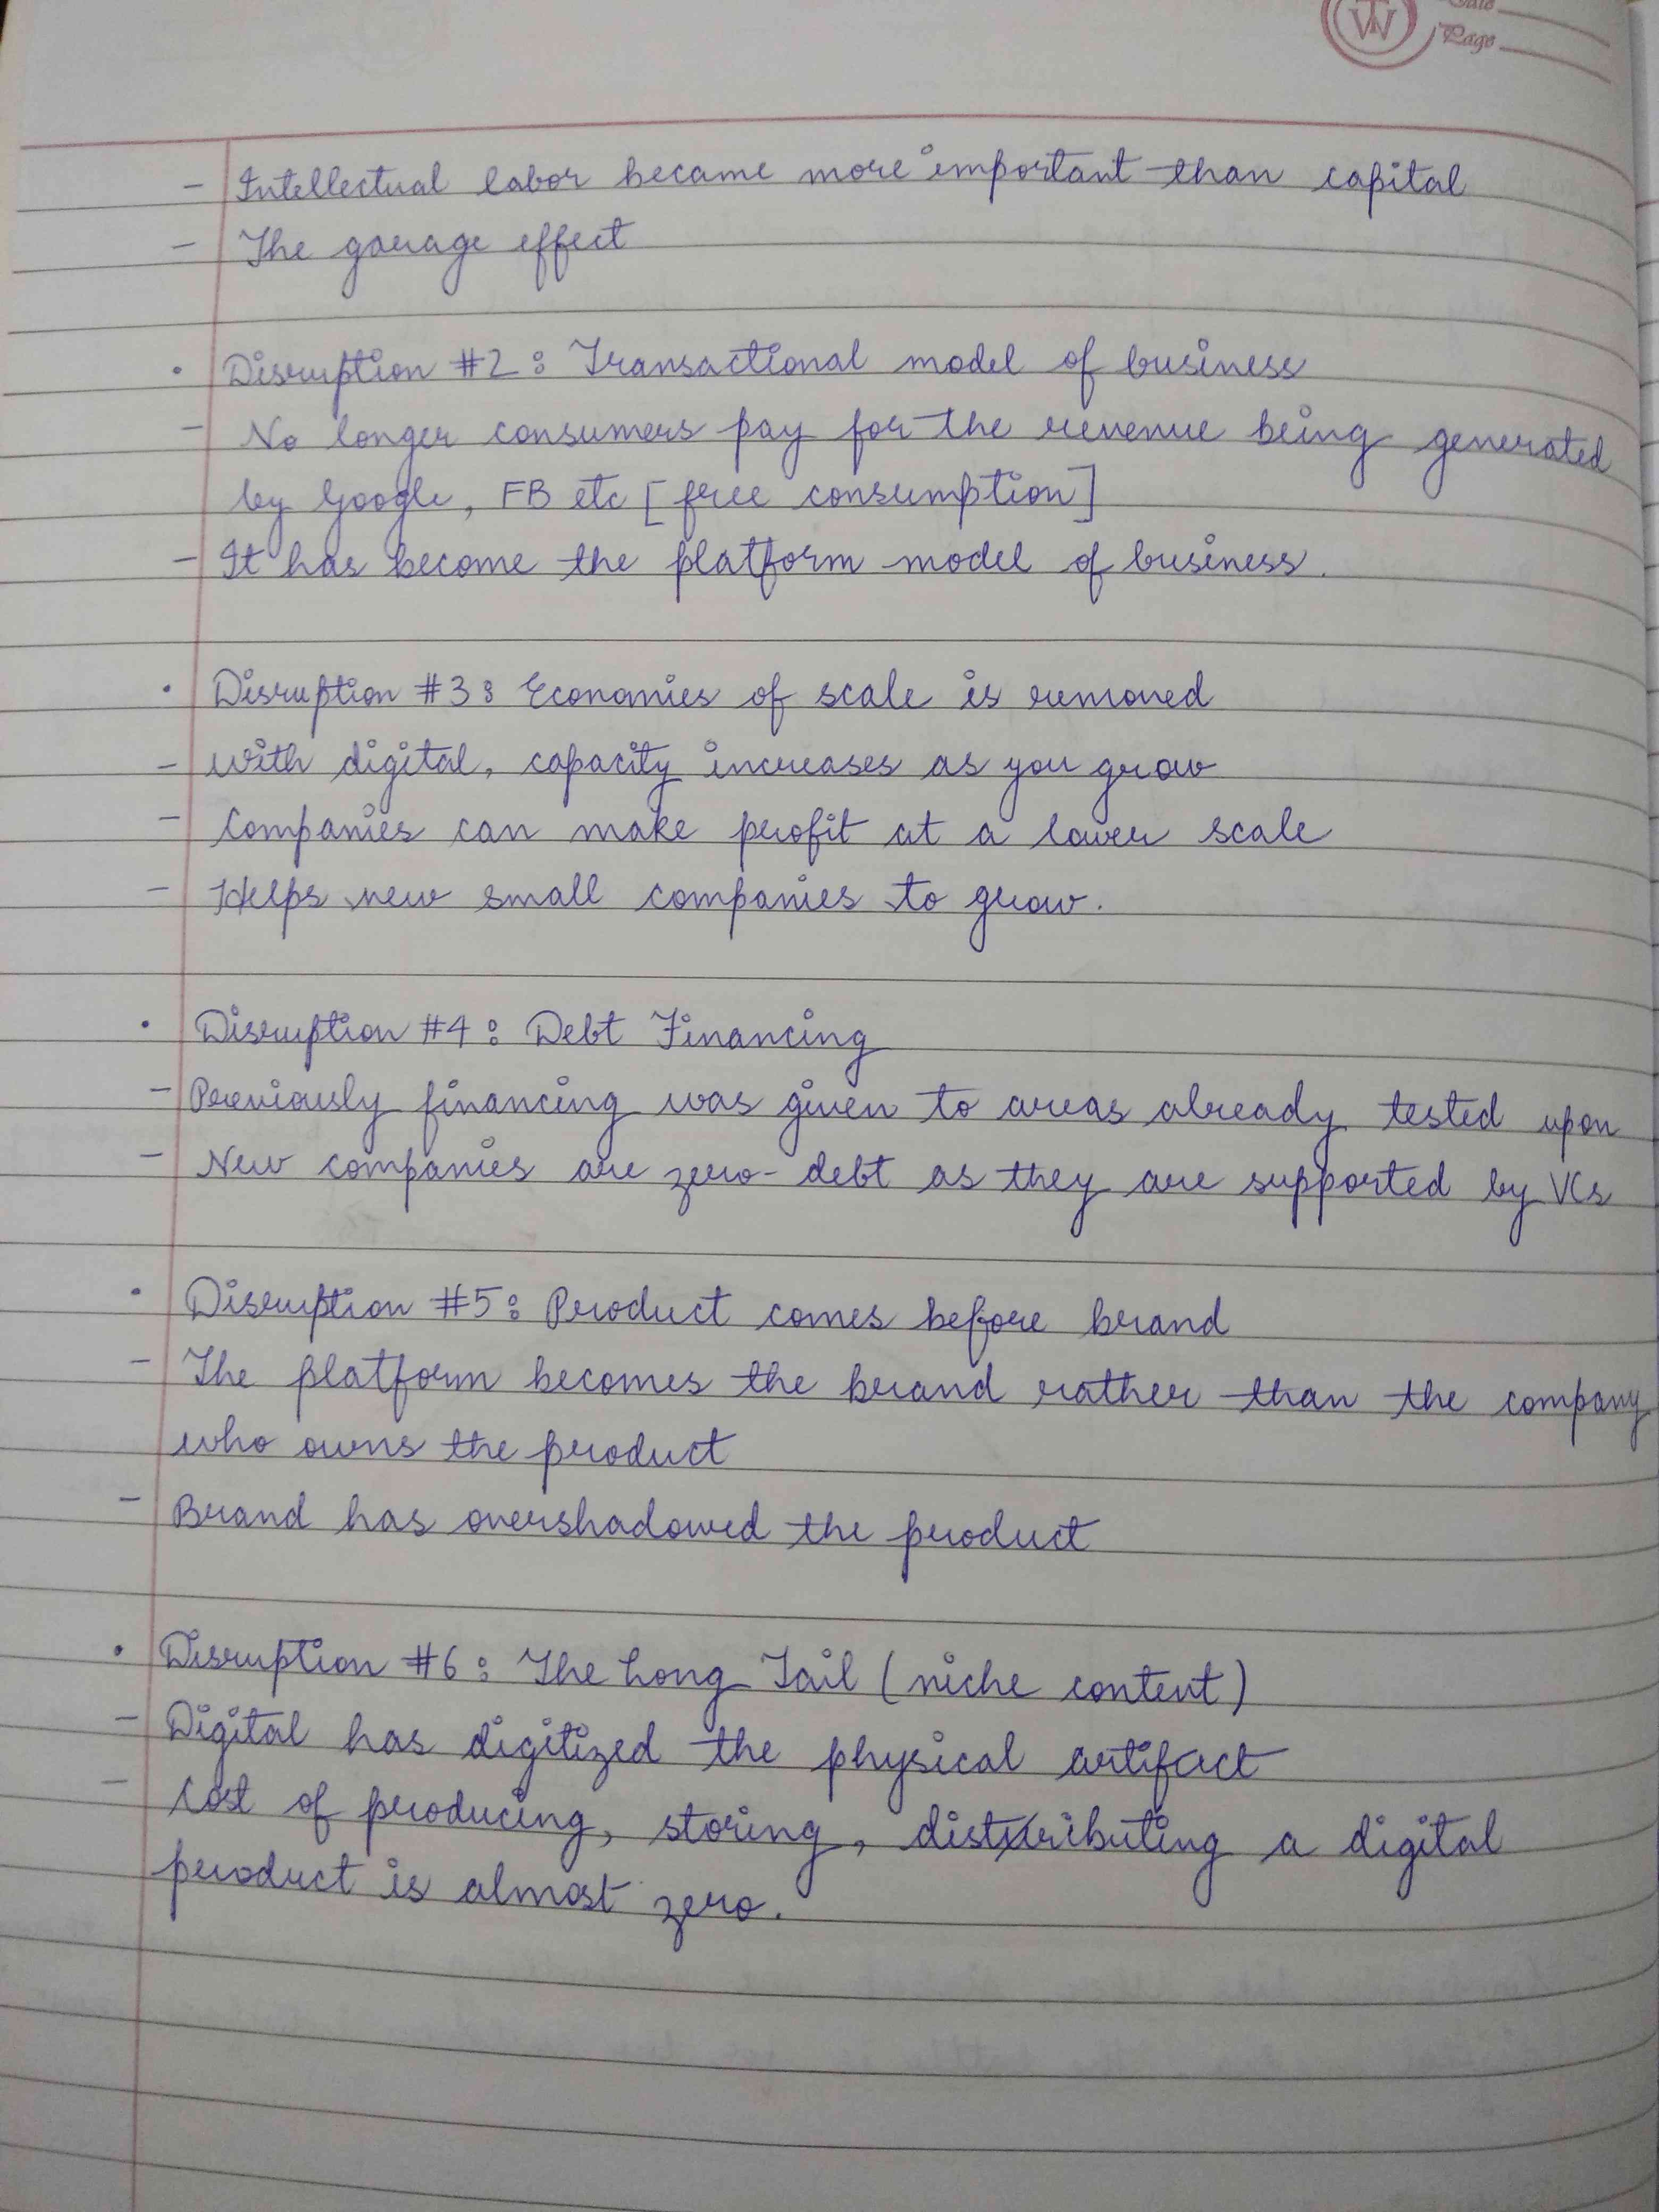 Page
- Intellectual labor became more important than capital
- The garage effect
• Disruption #2: Transactional model of business
- No longer consumers pay for the revenue being generated
by Google, FB etc [free consumption]
- It has become the platform model of business.
• Disruption #3: Economies of scale is removed
- with digital, capacity increases as you grow
- Companies can make profit at a lower scale
- Helps new small companies to grow.
• Disruption #4: Debt Financing
- Previously financing was given to areas already tested upon
- New companies are zero-debt as they are supported by VCs
• Disruption #5: Product comes before brand
- The platform becomes the brand rather than the company
who owns the product
- Brand has overshadowed the product
• Disruption #6: The Long Tail (niche content)
- Digital has digitized the physical artifact
- Cost of producing, storing, distributing a digital
product is almost zero.